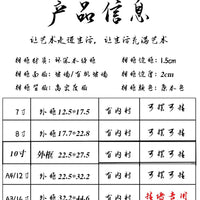 产品信息
让艺术走进生活，让生活充满艺术
相框材质：环保木塑框 相框边框：1.5cm
相框 相框厚度：2cm
相框背板：高密度板 相框颜色：原木色
7寸 外框12.5*17.5 有内衬 可摆可挂
8寸 外框17.7*22.8 有内衬 可摆可挂
10寸 外框22.5*27.5 有内衬 可摆可挂
A4/12寸 外框 22.2*32.2 有内衬 可摆可挂
外框32.2*44.6 有内衬 挂墙专用